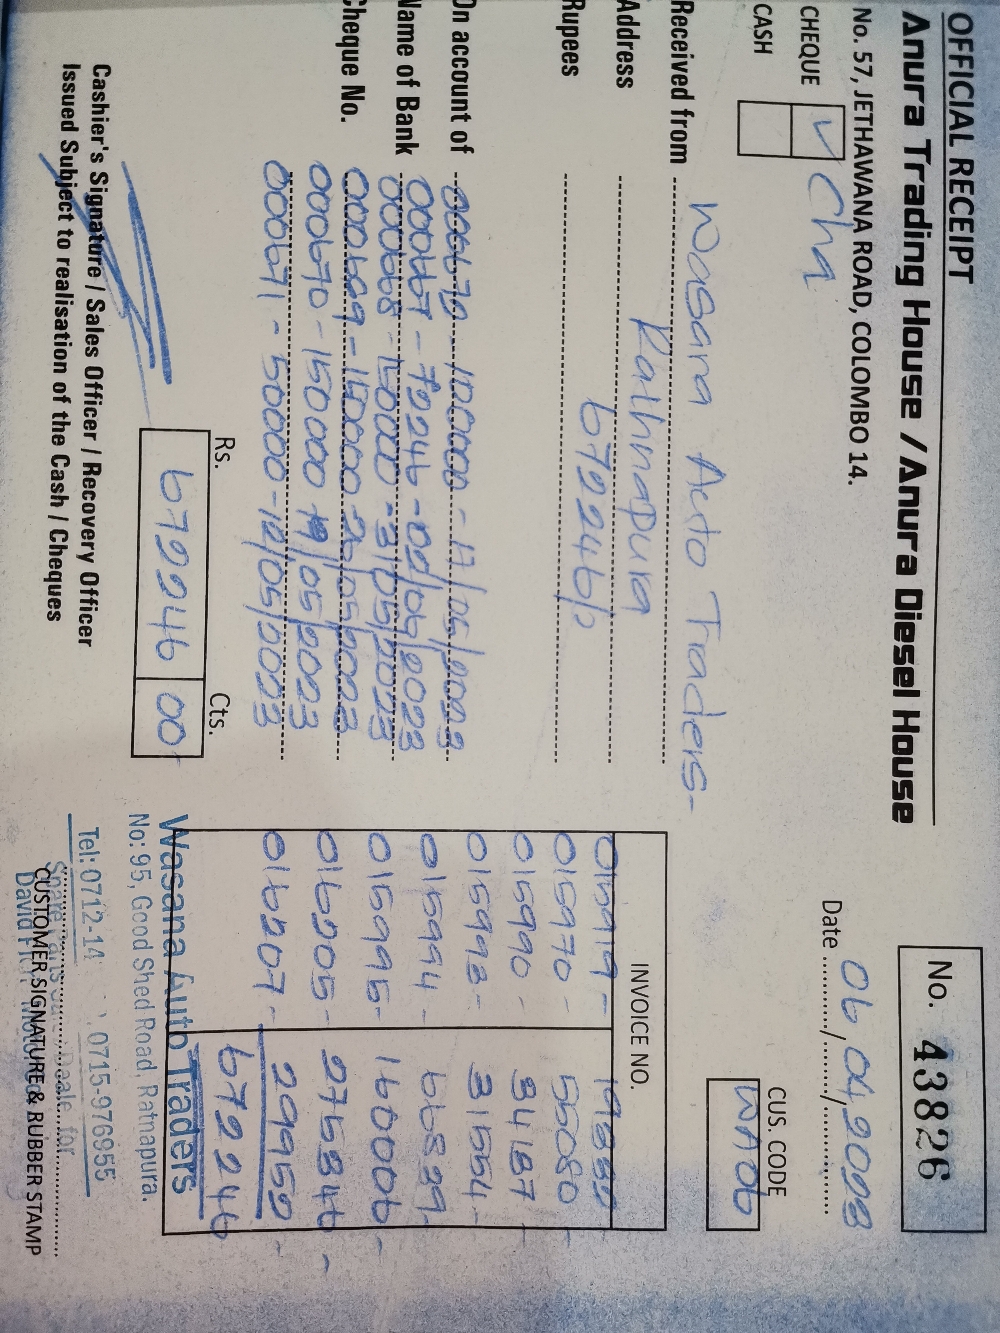 OFFICIAL RECEIPT
Anura Trading House / Anura Diesel House
No. 57, JETHAWANA ROAD, COLOMBO 14.
No. 43826
CHEQUE ✓ Chq
CASH
Date 06/04/2023
CUS. CODE
WA06
Received from Wasana Auto Traders-
Address Rathnapura
Rupees 679246/=
On account of 000672 - 100000 - 17/05/2023
000667 - 79246 - 02/06/2023
Name of Bank 000668 - 150000 - 31/05/2023
Cheque No. 000669 - 150000 - 26/05/2023
000670 - 150000 - 19/05/2023
000671 - 50000 - 12/05/2023
INVOICE NO.
015970 - 55080 -
015990 - 34187 -
015993 - 31554 -
015994 - 66839 -
015995 - 160006 -
016205 - 275846 -
016207 - 29952 -
679246
Rs. Cts.
679246 00
Cashier's Signature / Sales Officer / Recovery Officer
Issued Subject to realisation of the Cash / Cheques
Wasana Auto Traders
No: 95, Good Shed Road, Ratnapura.
Tel: 0712-14 0715-976955
CUSTOMER SIGNATURE & RUBBER STAMP